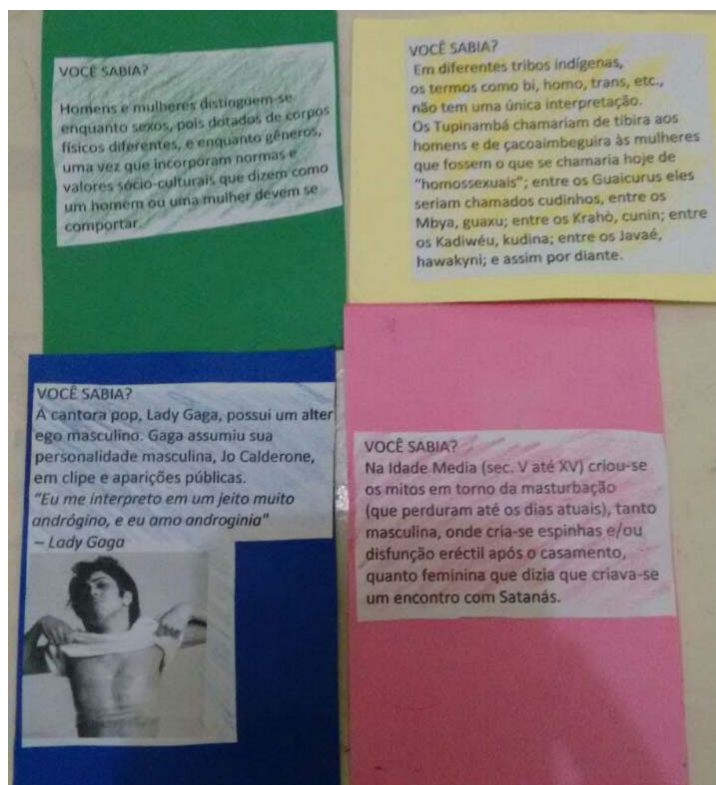 VOCÊ SABIA?
Homens e mulheres distinguem-se
enquanto sexos, pois dotados de corpos
físicos diferentes, e enquanto gêneros,
uma vez que incorporam normas e
valores sócio-culturais que dizem como
um homem ou uma mulher devem se
comportar.
VOCÊ SABIA?
Em diferentes tribos indígenas,
os termos como bi, homo, trans, etc.,
não tem uma única interpretação.
Os Tupinambá chamariam de tibira aos
homens e de çacoaimbeguira às mulheres
que fossem o que se chamaria hoje de
"homossexuais"; entre os Guaicurus eles
seriam chamados cudinhos, entre os
Mbya, guaxu; entre os Krahò, cunin; entre
os Kadiwéu, kudina; entre os Javaé,
hawakyni; e assim por diante.
VOCÊ SABIA?
A cantora pop, Lady Gaga, possui um alter
ego masculino. Gaga assumiu sua
personalidade masculina, Jo Calderone,
em clipe e aparições públicas.
"Eu me interpreto em um jeito muito
andrógino, e eu amo androginia"
– Lady Gaga
VOCÊ SABIA?
Na Idade Media (sec. V até XV) criou-se
os mitos em torno da masturbação
(que perduram até os dias atuais), tanto
masculina, onde cria-se espinhas e/ou
disfunção eréctil após o casamento,
quanto feminina que dizia que criava-se
um encontro com Satanás.